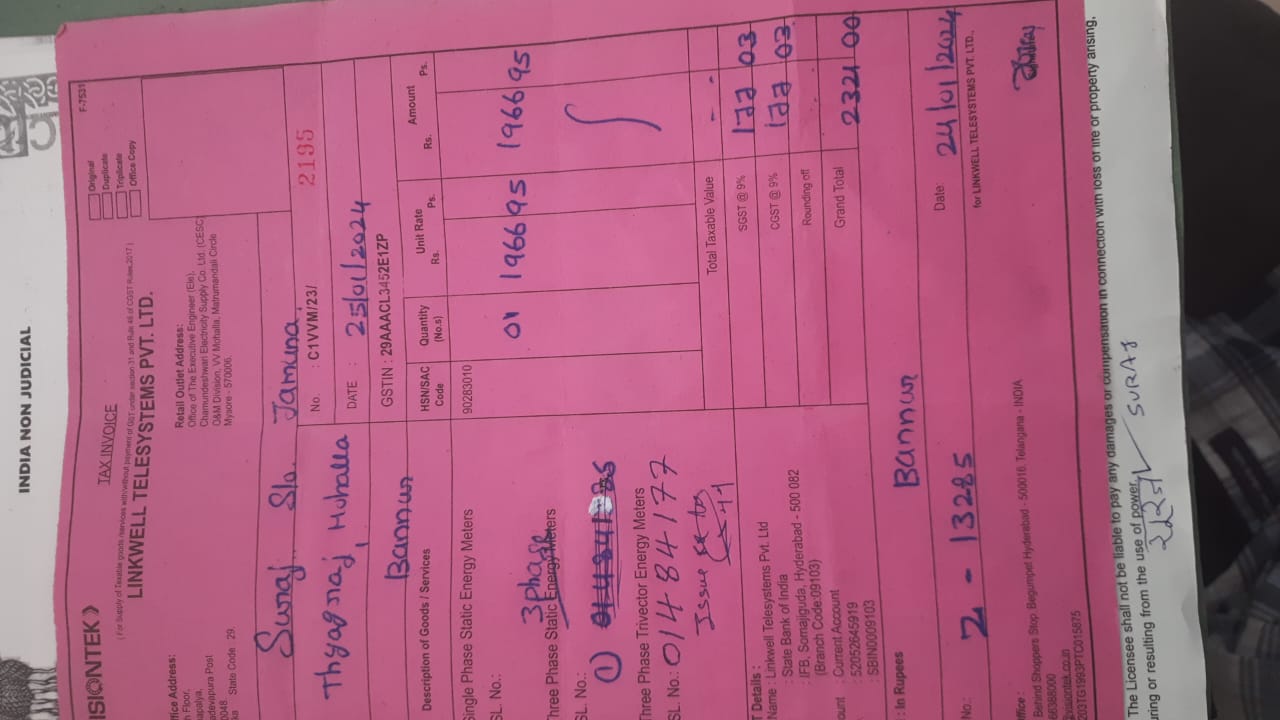 INDIA NON JUDICIAL
F-7531
TAX INVOICE
Original
Duplicate
Triplicate
Office Copy
( For Supply of Taxable goods /services with/without payment of GST under section 31 and Rule 46 of CGST Rules, 2017 )
ISIONTEK
LINKWELL TELESYSTEMS PVT. LTD.
ffice Address:
h Floor,
apalya,
adevapura Post
0048. State Code 29.
ka
Retail Outlet Address:
Office of The Executive Engineer (Ele),
Chamundeshwari Electricity Supply Co. Ltd. (CESC
O&M Division, VV Mohalla, Matrumandali Circle
Mysore - 570006.
Suraj S/o. Jamuna
Thyagraj Mohalla
Bannur
No. : C1VVM/23/ 2195
DATE : 25/01/2024
GSTIN : 29AAACL3452E1ZP
Description of Goods / Services
HSN/SAC Code
Quantity (No.s)
Unit Rate Rs. Ps.
Amount Rs. Ps.
Single Phase Static Energy Meters
90283010
SL. No.:
01 1966 95 1966 95
3 phase
Three Phase Static Energy Meters
SL. No.:
①
Three Phase Trivector Energy Meters
SL. No.: 01484177
Issue
Total Taxable Value - -
SGST @ 9% 177 03
CGST @ 9% 177 03
Rounding off
Grand Total 2321 00
T Details :
Name : Linkwell Telesystems Pvt. Ltd
: State Bank of India
: IFB, Somajiguda, Hyderabad - 500 082
(Branch Code:09103)
ount : Current Account
: 52052645919
: SBIN0009103
: In Rupees
Bannur
No.: 2 - 13285
Date: 24/01/2024
for LINKWELL TELESYSTEMS PVT. LTD.,
ffice :
Behind Shoppers Stop, Begumpet Hyderabad - 500016. Telangana - INDIA
66388000
visiontek.co.in
203TG1993PTC015875
The Licensee shall not be liable to pay any damages or compensation in connection with loss of life or property arising,
uring or resulting from the use of power.
SURAJ